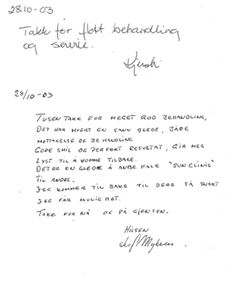 28.10-03
Takk for flott behandling
og service.
28/10-03
TUSEN TAKK FOR MEGET GOD BEHANDLING,
DET HAR VÆRT EN SANN GLEDE, BÅDE
MOTTAKELSE OG BEHANDLING.
GODE SMIL OG PERFEKT RESULTAT, GIR MEG
LYST TIL Å KOMME TILBAKE.
DET ER EN GLEDE Å ANBEFALE "SUN CLINIC"
TIL ANDRE.
JEG KOMMER TIL BAKE TIL DERE SÅ SNART
JEG FÅR MULIGHET.
TAKK FOR NÅ OG PÅ GJENSYN.
HILSEN